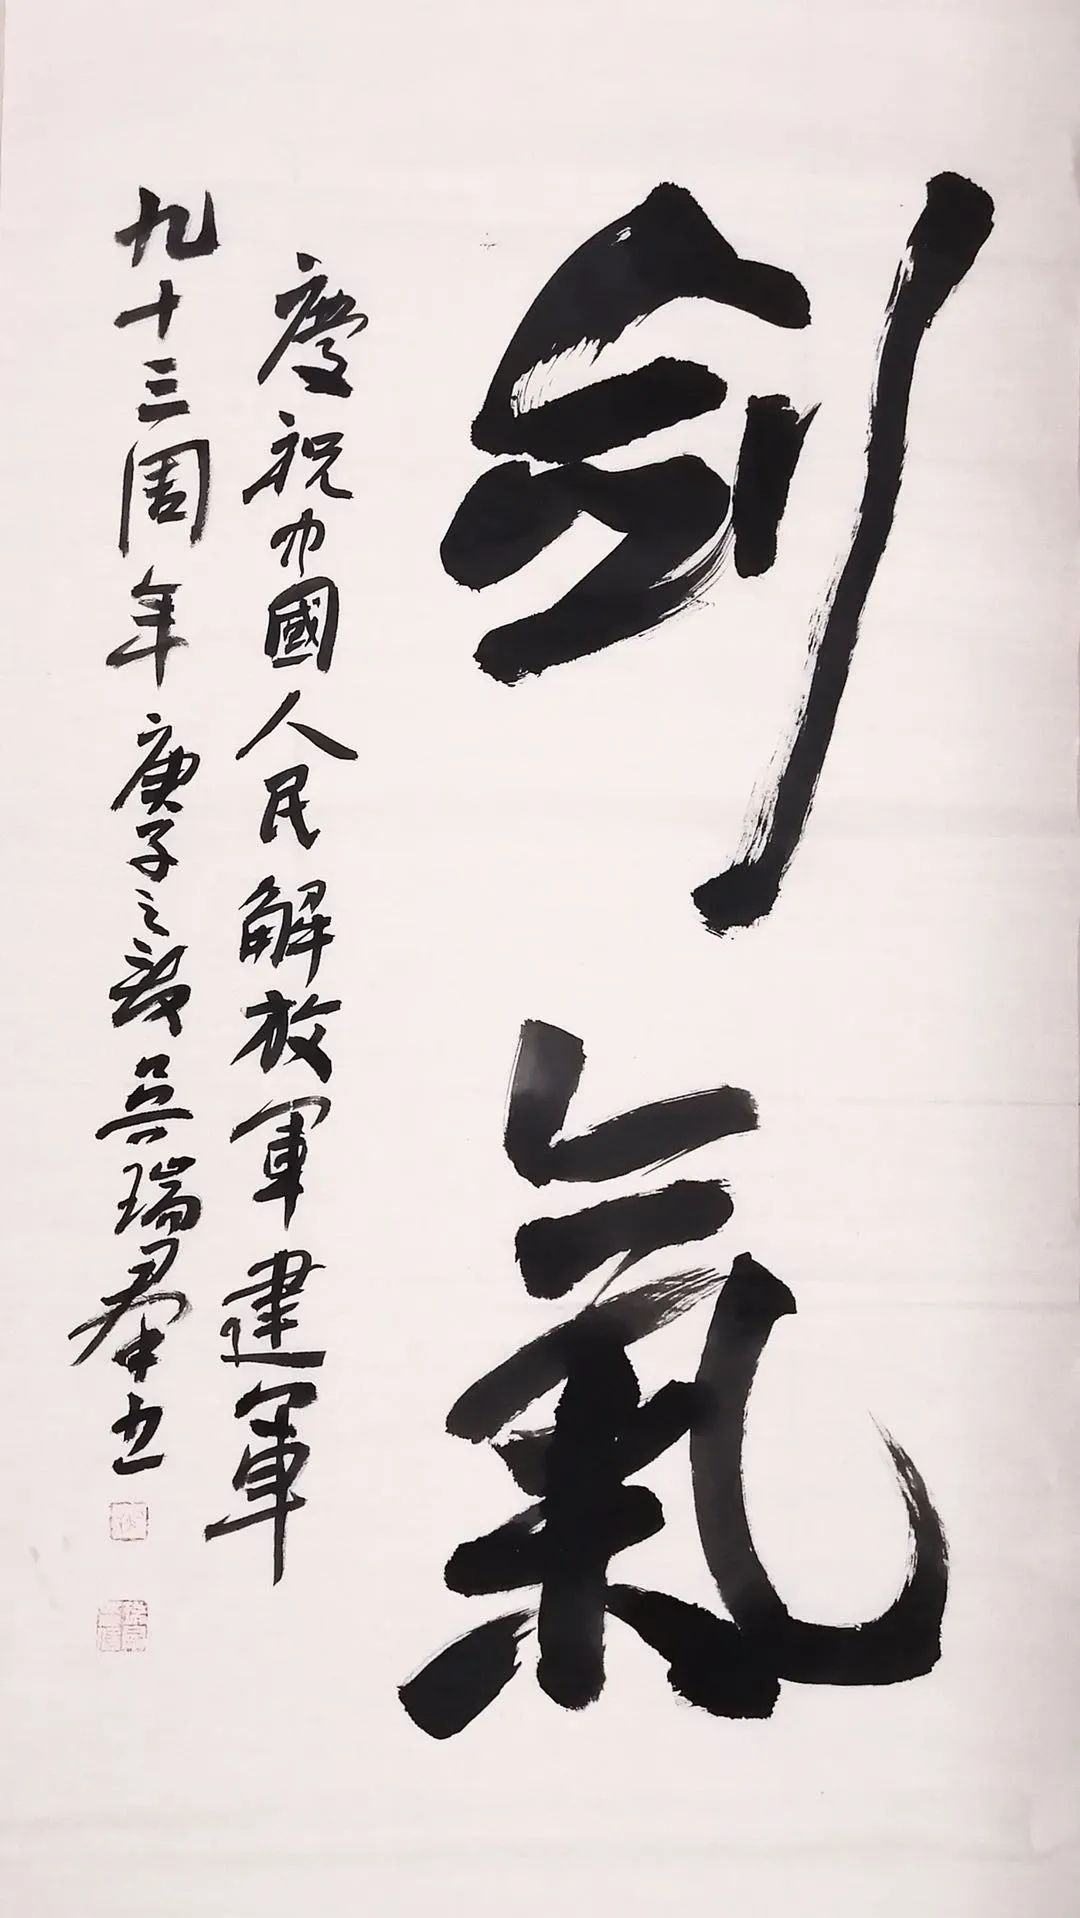 剑氣
慶祝中國人民解放軍建軍
九十三周年庚子之夏吴瑞羣书